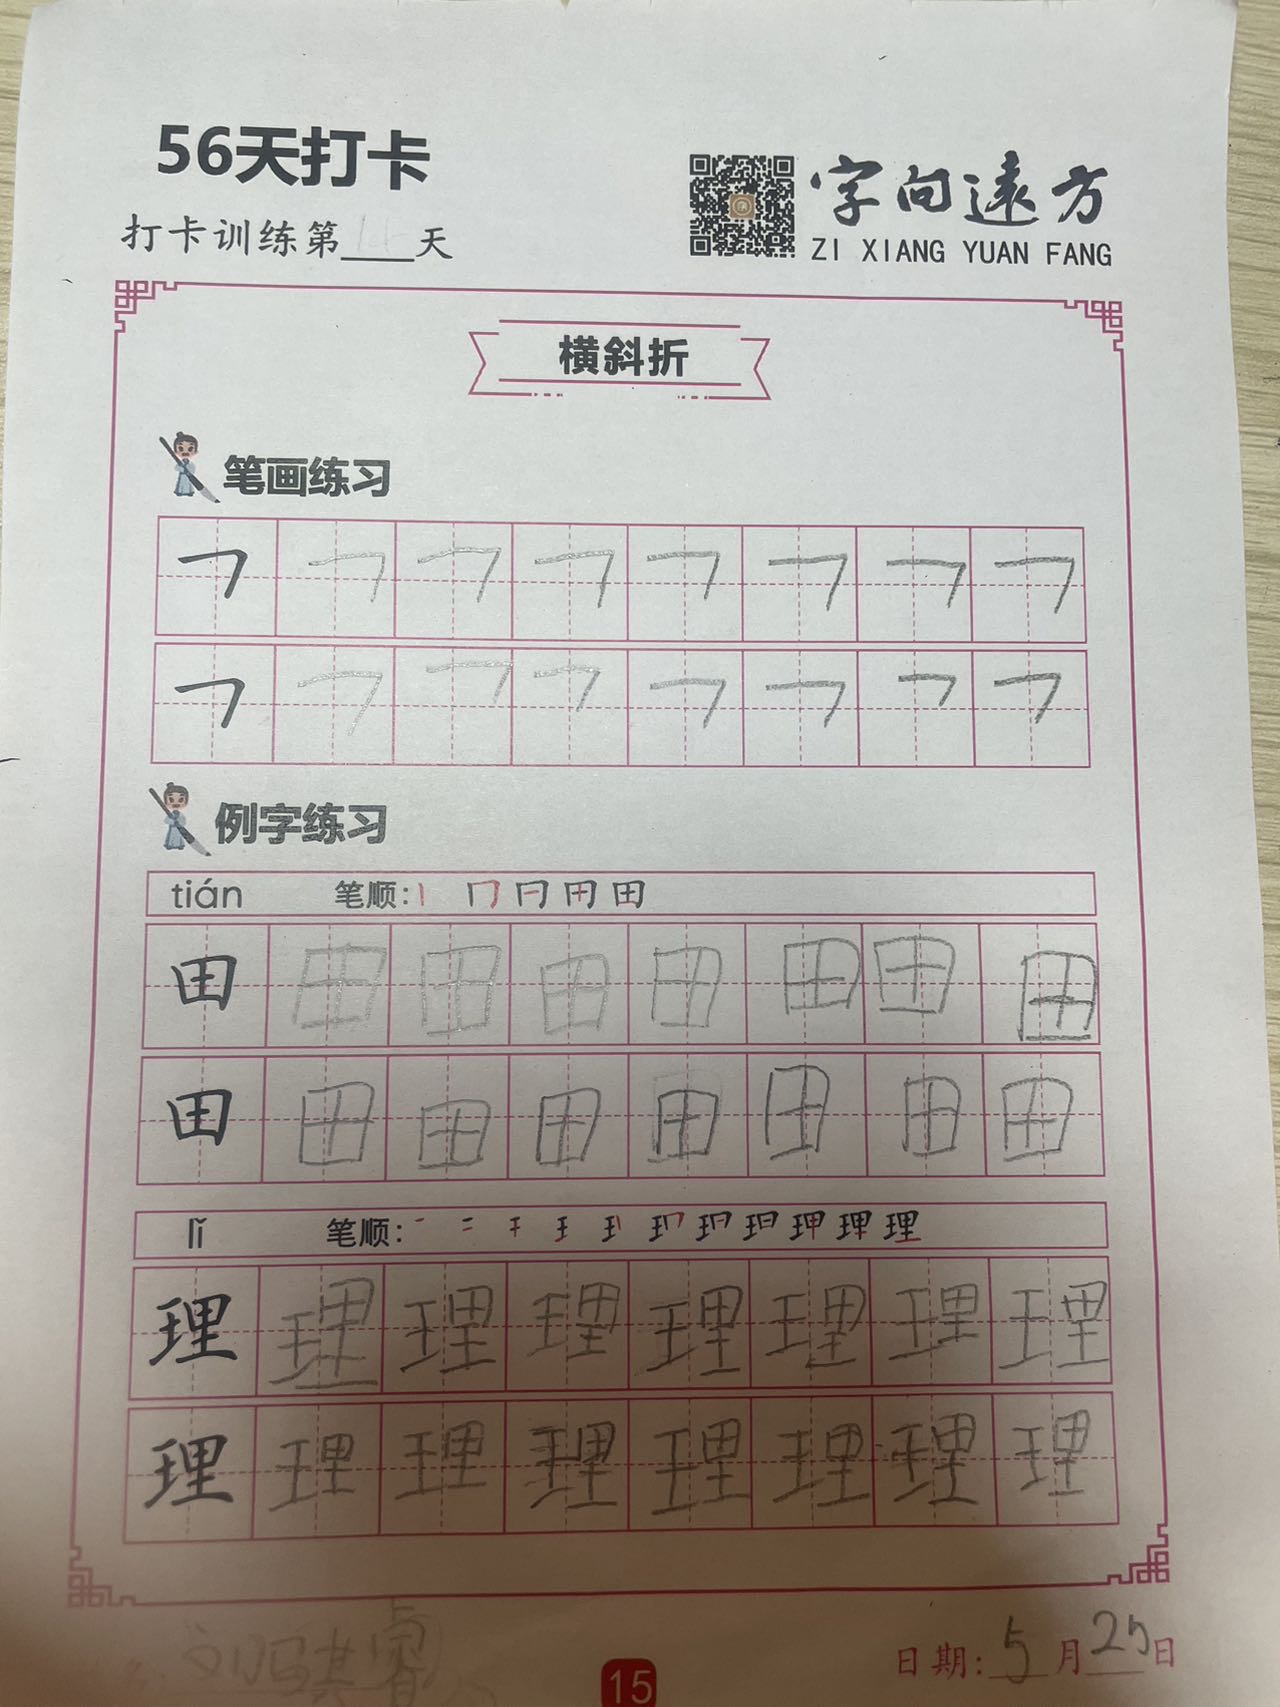 56天打卡
打卡训练第14天
字向遠方
ZI XIANG YUAN FANG
横斜折
笔画练习
㇕ ㇕ ㇕ ㇕ ㇕ ㇕ ㇕ ㇕
㇕ ㇕ ㇕ ㇕ ㇕ ㇕ ㇕ ㇕
例字练习
tián 笔顺: 丨 冂 冃 田 田
田 田 田 田 田 田 田 田
田 田 田 田 田 田 田 田
lǐ 笔顺:
理 理 理 理 理 理 理 理
理 理 理 理 理 理 理 理
15
日期: 5月25日